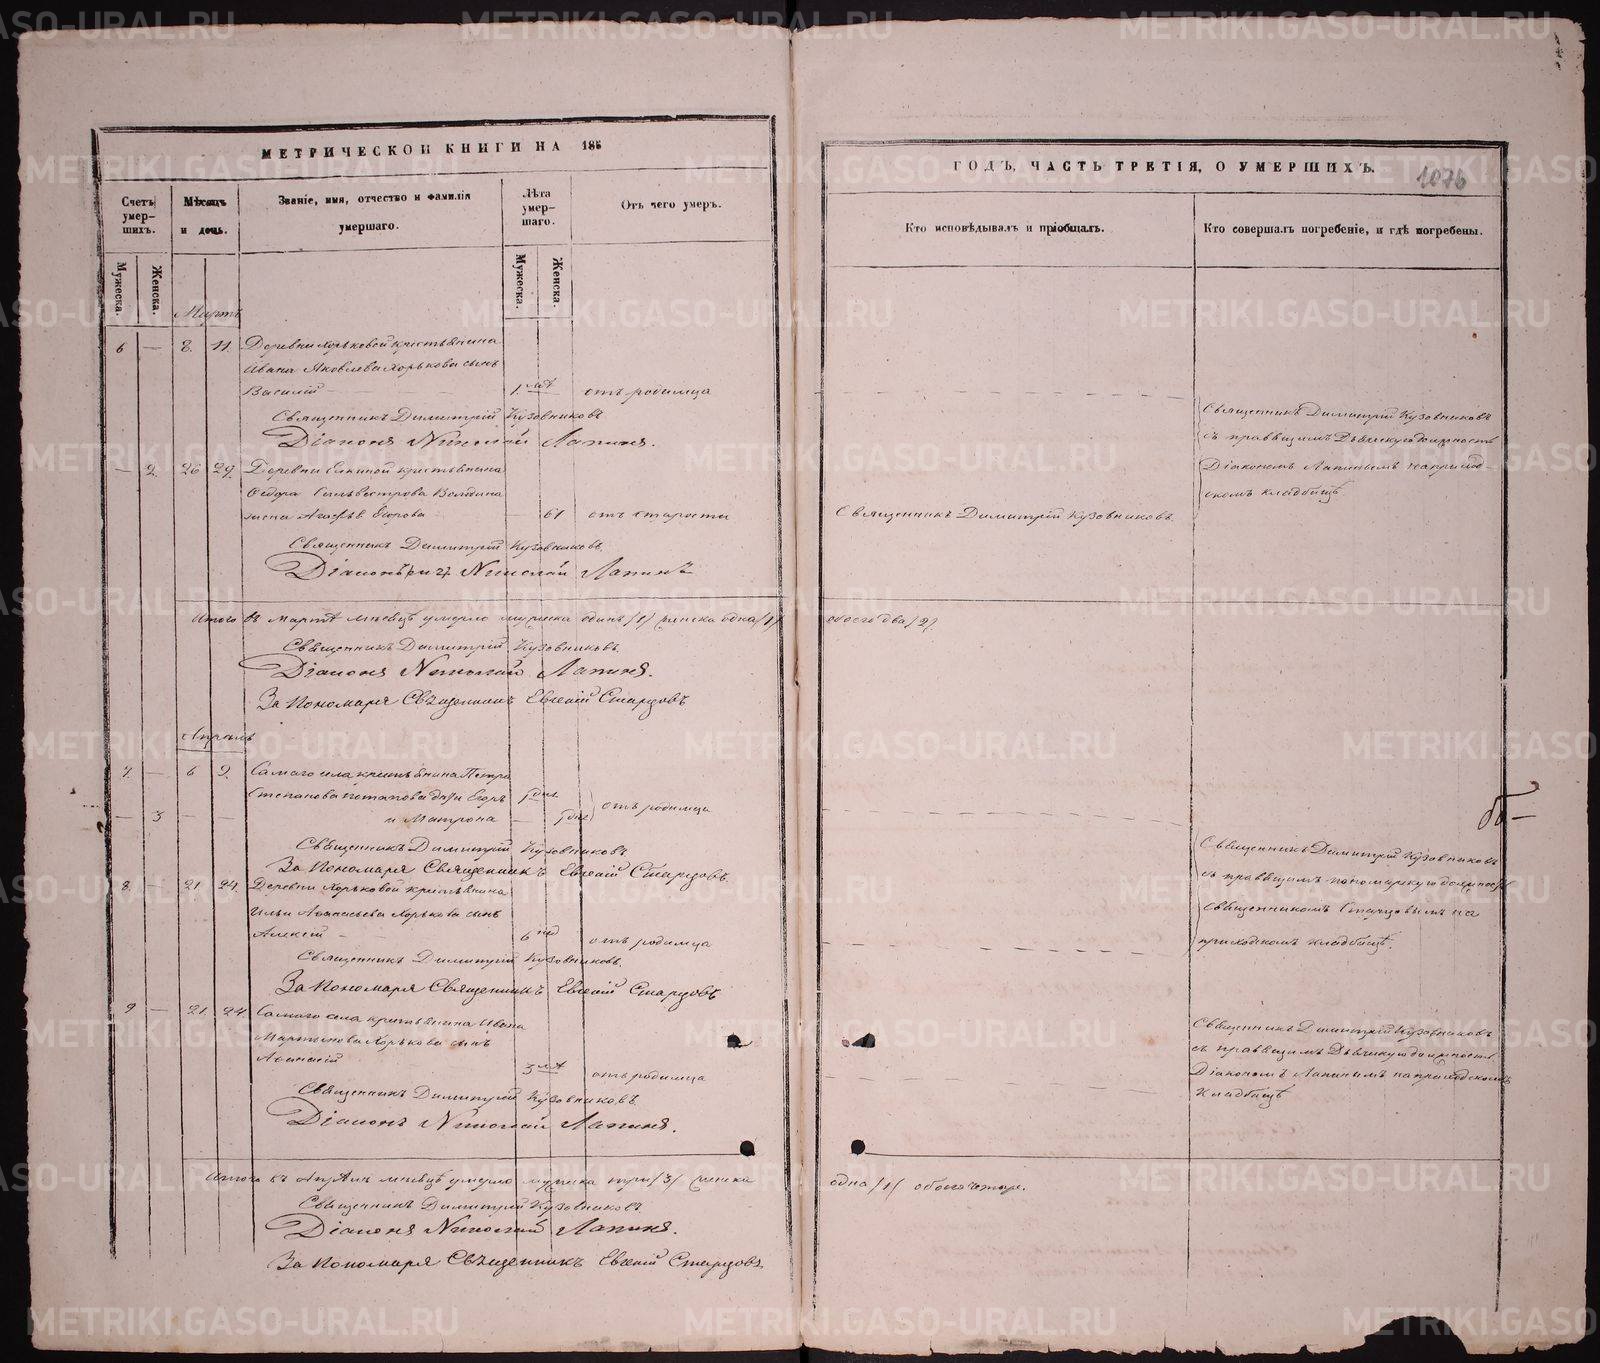 МЕТРИЧЕСКОЙ КНИГИ НА 185
Счетъ умер- шихъ.
Мѣсяцъ и день.
Званіе, имя, отчество и фамилія умершаго.
Лѣта умер- шаго.
Отъ чего умеръ.
Мужеска.
Женска.
Мужеска.
Женска.
Мартъ
6 — 8. 11. Деревни Хорьковой крестьянина
Ивана Яковлева Хорькова сынъ
Василій 1. лѣ отъ родимца
Священникъ Димитрій Кузовниковъ
Діаконъ Николай Лапинъ.
— 2. 26 29. Деревни крестьянина
Федора Силвестрова
жена Егорова 61 отъ старости
Священникъ Димитрій Кузовниковъ.
Діаконъ Николай Лапинъ
Итого въ Мартѣ мѣсяцѣ умерло мужеска одинъ /1/ женска одна /1/
Священникъ Димитрій Кузовниковъ.
Діаконъ Николай Лапинъ.
За Пономаря Священникъ Евгеній Старцовъ
Апрѣль
7. — 6 9. Самаго села крестьянина Петра
Степанова Потапова дѣти Егоръ
— 3 — — и Матрона — отъ родимца
Священникъ Димитрій Кузовниковъ
За Пономаря Священникъ Евгеній Старцовъ.
8. — 21. 24. Деревни Хорьковой крестьянина
Ильи Аѳанасьева Хорькова сынъ
Алексій 6 нед отъ родимца
Священникъ Димитрій Кузовниковъ.
За Пономаря Священникъ Евгеній Старцовъ
9 — 21. 24. Самаго села крестьянина Ивана
Мартынова Хорькова сынъ
Аѳанасій 3 лѣ отъ родимца
Священникъ Димитрій Кузовниковъ.
Діаконъ Николай Лапинъ.
Итого въ Апрѣлѣ мѣсяцѣ умерло мужеска три /3/ женска
Священникъ Димитрій Кузовниковъ.
Діаконъ Николай Лапинъ.
За Пономаря Священникъ Евгеній Старцовъ.
ГОДЪ, ЧАСТЬ ТРЕТІЯ, О УМЕРШИХЪ.
1076
Кто исповѣдывалъ и пріобщалъ.
Кто совершалъ погребеніе, и гдѣ погребены.
Священникъ Димитрій Кузовниковъ
съ правящимъ должность
Діакономъ Лапинымъ на приход-
скомъ кладбищѣ
Священникъ Димитрій Кузовниковъ.
обоего два /2/.
Священникъ Димитрій Кузовниковъ
съ правящимъ пономарскую должность
священникомъ Старцовымъ на
приходскомъ кладбищѣ.
Священникъ Димитрій Кузовниковъ
съ правящимъ должность
Діакономъ Лапинымъ на приходскомъ
кладбищѣ
одна /1/ обоего четыре.
METRIKI.GASO-URAL.RU